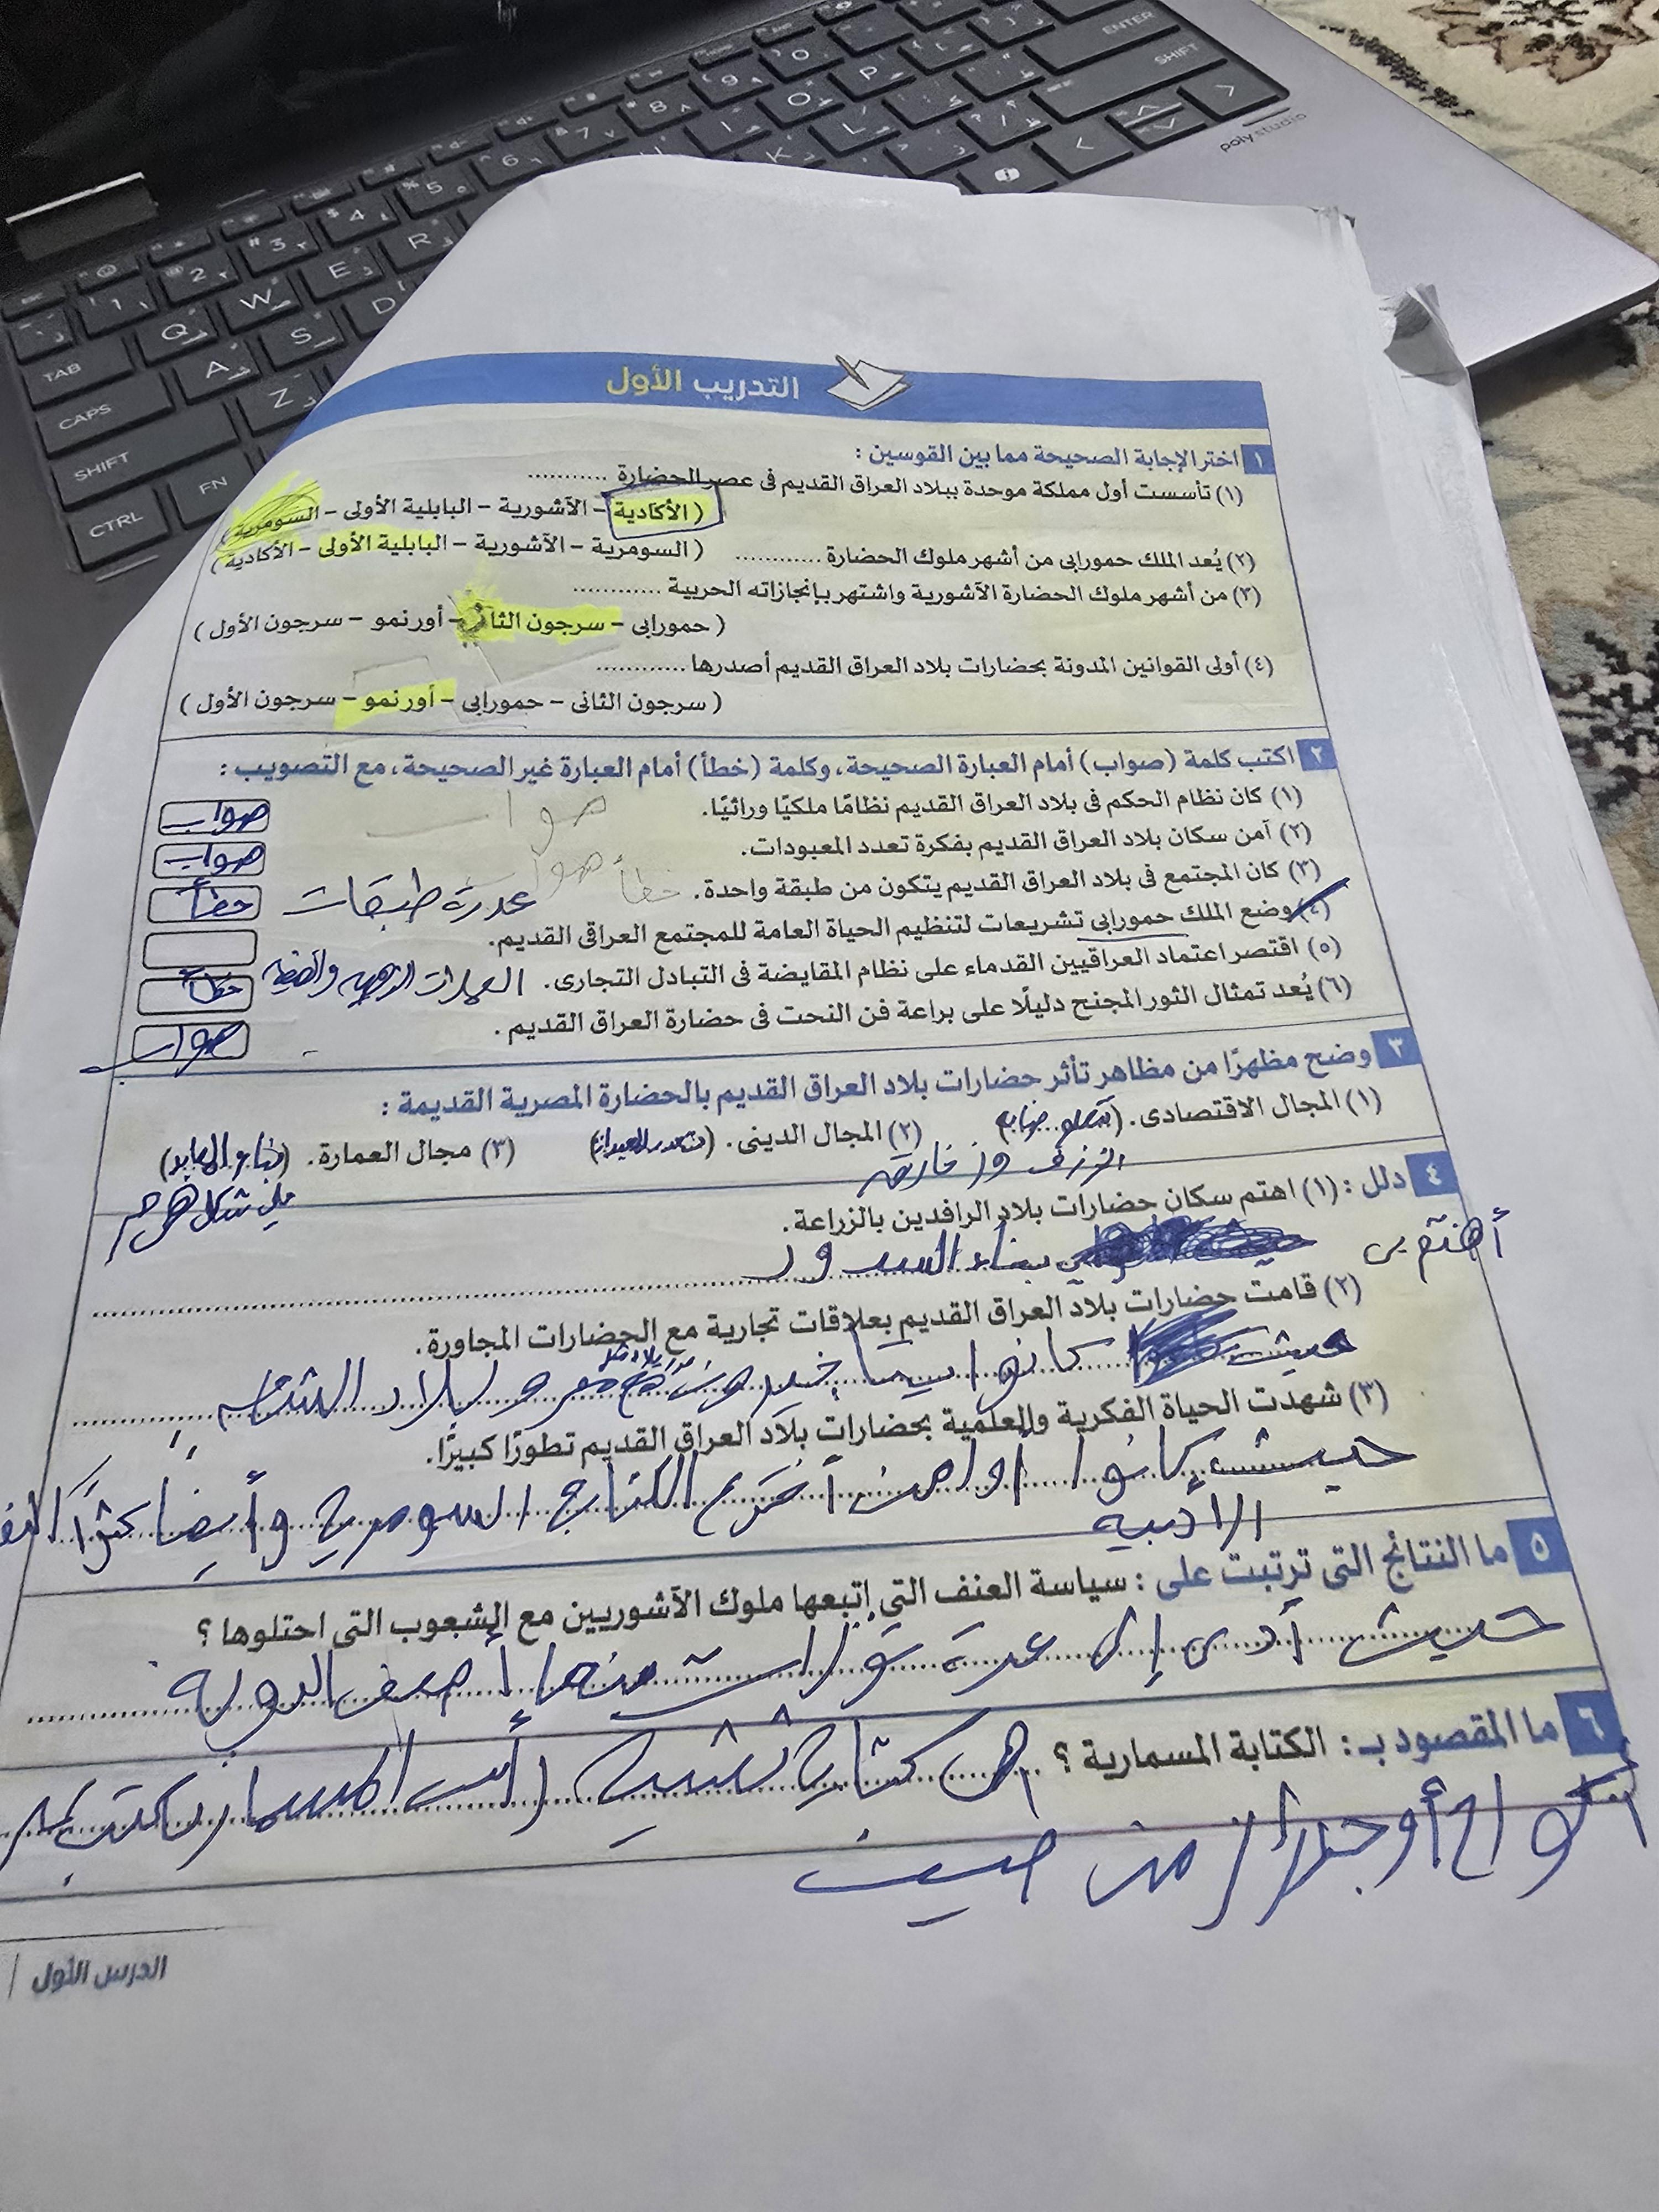 ENTER
SHIFT
poly studio
TAB
CAPS
SHIFT
FN
CTRL
Q W E R
A S D
Z
التدريب الأول
١ اختر الإجابة الصحيحة مما بين القوسين :
(١) تأسست أول مملكة موحدة ببلاد العراق القديم فى عصر الحضارة ............
( الأكادية – الآشورية – البابلية الأولى – السومرية )
(٢) يُعد الملك حمورابى من أشهر ملوك الحضارة ............ ( السومرية – الآشورية – البابلية الأولى – الأكادية )
(٣) من أشهر ملوك الحضارة الآشورية واشتهر بإنجازاته الحربية ............
( حمورابى – سرجون الثانى – أورنمو – سرجون الأول )
(٤) أولى القوانين المدونة بحضارات بلاد العراق القديم أصدرها ............
( سرجون الثانى – حمورابى – أورنمو – سرجون الأول )
٢ اكتب كلمة (صواب) أمام العبارة الصحيحة، وكلمة (خطأ) أمام العبارة غير الصحيحة، مع التصويب :
(١) كان نظام الحكم فى بلاد العراق القديم نظامًا ملكيًا وراثيًا. صواب
(٢) آمن سكان بلاد العراق القديم بفكرة تعدد المعبودات. صواب
(٣) كان المجتمع فى بلاد العراق القديم يتكون من طبقة واحدة. خطأ عدة طبقات خطأ
(٤) وضع الملك حمورابى تشريعات لتنظيم الحياة العامة للمجتمع العراقى القديم.
(٥) اقتصر اعتماد العراقيين القدماء على نظام المقايضة فى التبادل التجارى. العملات الذهبية والفضية خطأ
(٦) يُعد تمثال الثور المجنح دليلًا على براعة فن النحت فى حضارة العراق القديم. صواب
٣ وضح مظهرًا من مظاهر تأثر حضارات بلاد العراق القديم بالحضارة المصرية القديمة :
(١) المجال الاقتصادى. (٢) المجال الدينى. (٣) مجال العمارة. (بناء المعابد)
على شكل هرم
٤ دلل : (١) اهتم سكان حضارات بلاد الرافدين بالزراعة.
بناء السدود
(٢) قامت حضارات بلاد العراق القديم بعلاقات تجارية مع الحضارات المجاورة.
حيث كانوا مصر و بلاد الشام
(٣) شهدت الحياة الفكرية والعلمية بحضارات بلاد العراق القديم تطورًا كبيرًا.
حيث كانوا أول من أخترع الكتابة السومرية وأيضا
الأدبية
٥ ما النتائج التى ترتبت على : سياسة العنف التى اتبعها ملوك الآشوريين مع الشعوب التى احتلوها ؟
حيث أدى إلى عدة ثورات أضعف الدولة
٦ ما المقصود بـ : الكتابة المسمارية ؟ هى كتابة تشبه رأس المسمار
الدرس الأول